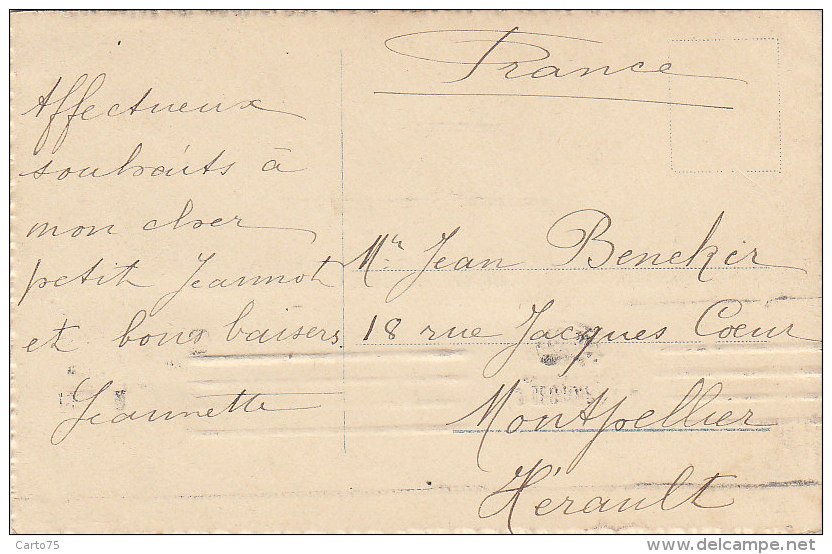 Affectueux
souhaits à
mon cher
petit Jeannot
et bons baisers
Jeannette
France
Mr Jean Beneker
18 rue Jacques Coeur
Montpellier
Hérault
Carto75
www.delcampe.net